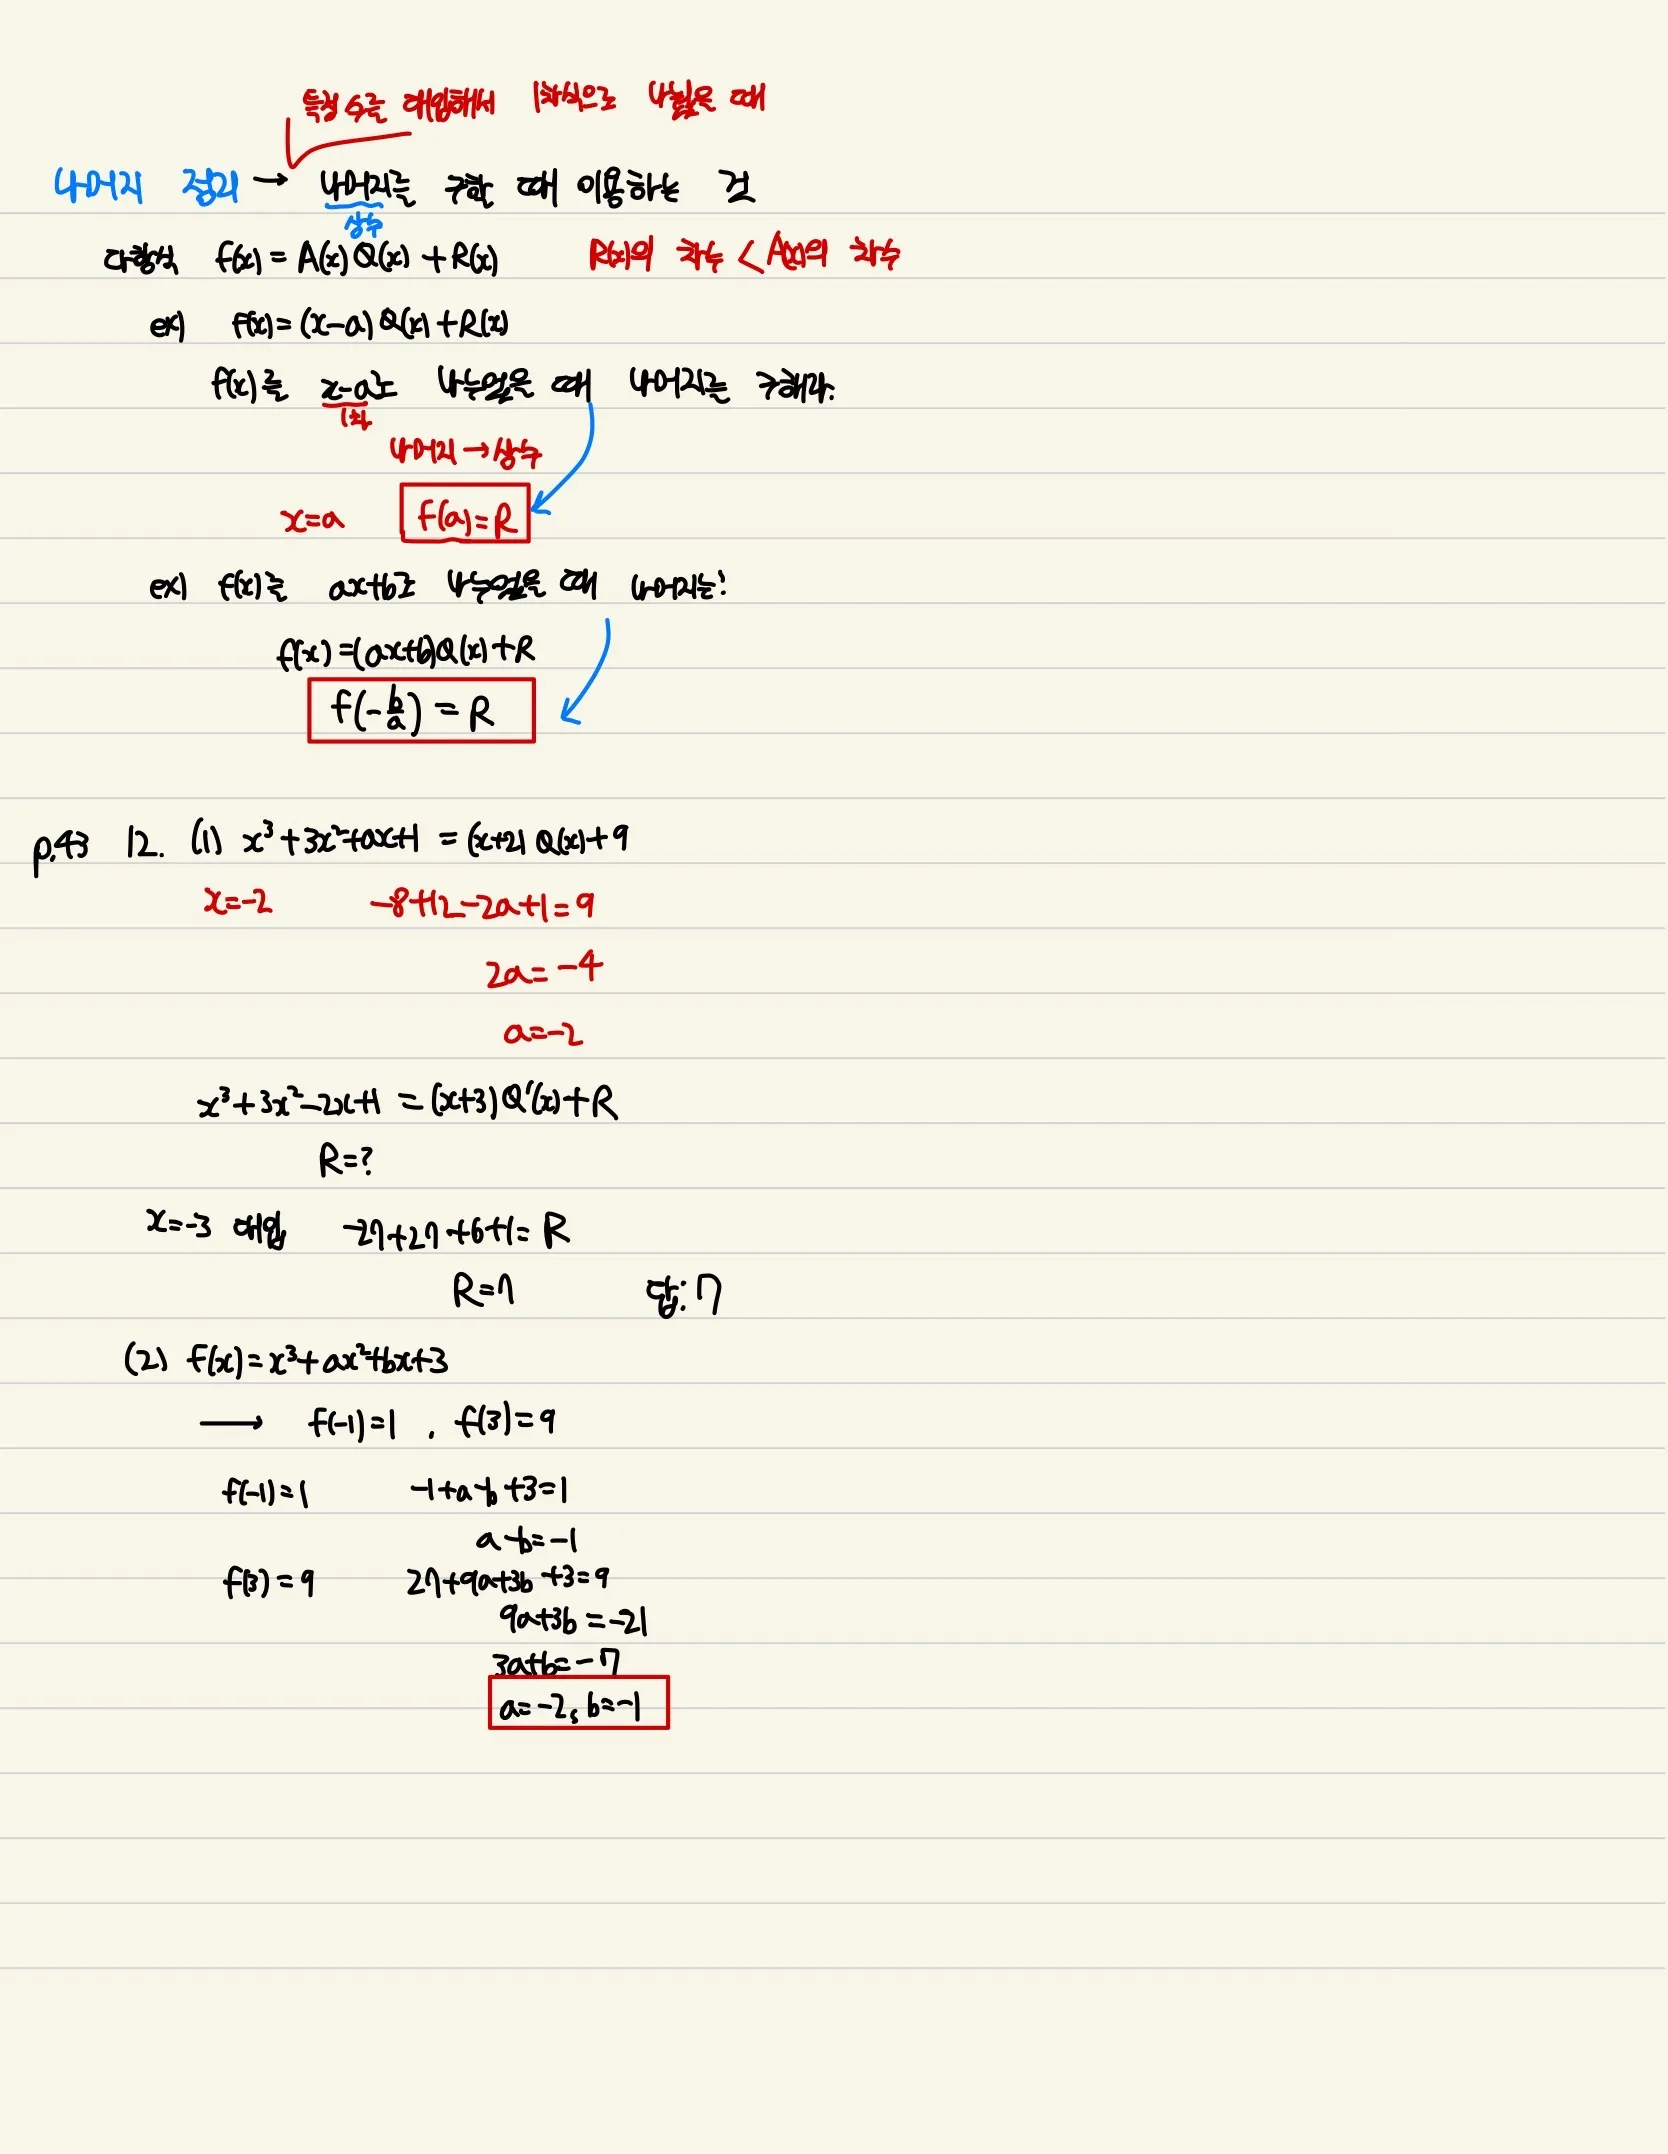 특정 수를 대입해서 1차식으로 나눴을 때
나머지 정리 → 나머지를 구할 때 이용하는 것
상수
다항식 f(x) = A(x)Q(x) + R(x) R(x)의 차수 < A(x)의 차수
ex) f(x) = (x-a)Q(x) + R(x)
f(x)를 x-a로 나누었을 때 나머지를 구해라.
1차
나머지 → 상수
x=a f(a)=R
ex) f(x)를 ax+b로 나누었을 때 나머지는?
f(x) = (ax+b)Q(x) + R
f(-b/a) = R
p.43 12. (1) x³+3x²+ax+1 = (x+2)Q(x)+9
x=-2 -8+12-2a+1=9
2a=-4
a=-2
x³+3x²-2x+1 = (x+3)Q'(x)+R
R=?
x=-3 대입 -27+27+6+1=R
R=7 답: 7
(2) f(x)=x³+ax²+bx+3
→ f(-1)=1 , f(3)=9
f(-1)=1 -1+a-b+3=1
a-b=-1
f(3)=9 27+9a+3b+3=9
9a+3b=-21
3a+b=-7
a=-2, b=-1